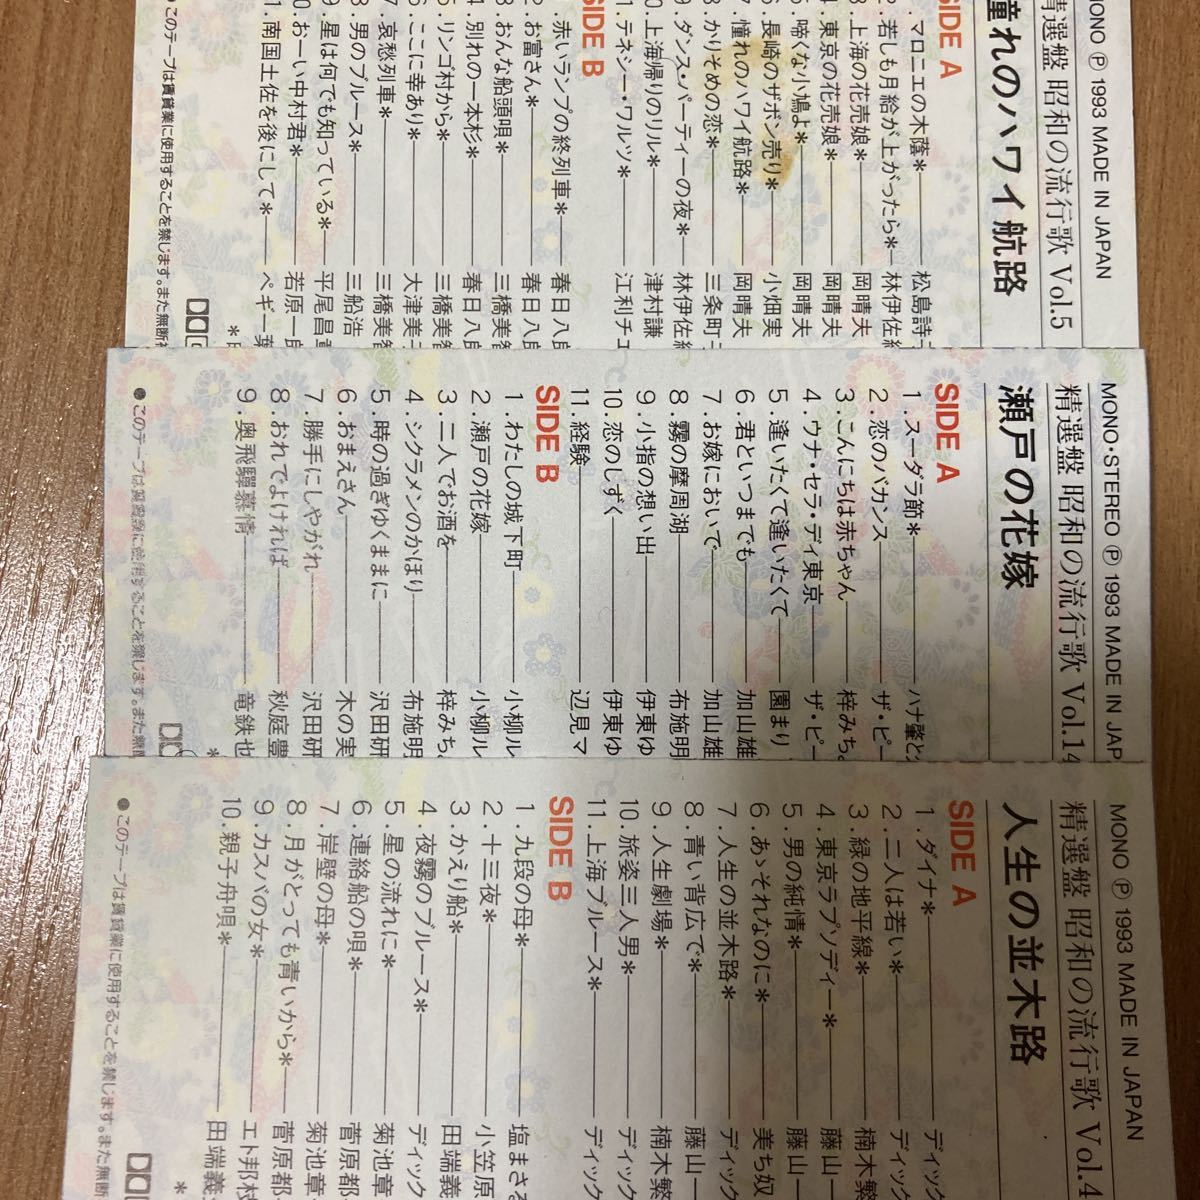 MONO Ⓟ 1993 MADE IN JAPAN
精選盤 昭和の流行歌 Vol.5
憧れのハワイ航路
SIDE A
マロニエの木蔭*―松島詩
2.若しも月給が上がったら*―林伊佐
3.上海の花売娘*―岡晴夫
4.東京の花売娘*―岡晴夫
5.啼くな小鳩よ*―岡晴夫
6.長崎のザボン売り*―小畑実
7.憧れのハワイ航路*―岡晴夫
8.かりそめの恋*―三条町
9.ダンス・パーティーの夜*―林伊佐
10.上海帰りのリル*―津村謙
11.テネシー・ワルツ*―江利チエ
SIDE B
赤いランプの終列車*―春日八
2.お富さん*―春日八
3.おんな船頭唄*―三橋美
4.別れの一本杉*―春日八
5.リンゴ村から*―三橋美
6.ここに幸あり*―大津美
7.哀愁列車*―三橋美
8.男のブルース*―三船浩
9.星は何でも知っている*―平尾昌
10.おーい中村君*―若原一
11.南国土佐を後にして*―ペギー葉
●このテープは賃貸業に使用することを禁じます。また無断
MONO・STEREO Ⓟ 1993 MADE IN JAP
精選盤 昭和の流行歌 Vol.14
瀬戸の花嫁
SIDE A
1.スーダラ節*―ハナ肇と
2.恋のバカンス―ザ・ピー
3.こんにちは赤ちゃん―梓みち
4.ウナ・セラ・ディ東京―ザ・ピー
5.逢いたくて逢いたくて―園まり
6.君といつまでも―加山雄
7.お嫁においで―加山雄
8.霧の摩周湖―布施明
9.小指の想い出―伊東ゆ
10.恋のしずく―伊東ゆ
11.経験―辺見マ
SIDE B
1.わたしの城下町―小柳ル
2.瀬戸の花嫁―小柳ル
3.二人でお酒を―梓みち
4.シクラメンのかほり―布施明
5.時の過ぎゆくままに―沢田研
6.おまえさん―木の実
7.勝手にしやがれ―沢田研
8.おれでよければ―秋庭豊
9.奥飛驒慕情―竜鉄也
●このテープは賃貸業に使用することを禁じます。また無断
MONO Ⓟ 1993 MADE IN JAPAN
精選盤 昭和の流行歌 Vol.4
人生の並木路
SIDE A
1.ダイナ*―ディック
2.二人は若い*―ディック
3.緑の地平線*―楠木繁
4.東京ラプソディー*―藤山一
5.男の純情*―藤山一
6.あゝそれなのに*―美ち奴
7.人生の並木路*―ディック
8.青い背広で*―藤山一
9.人生劇場*―楠木繁
10.旅姿三人男*―ディック
11.上海ブルース*―ディック
SIDE B
1.九段の母*―塩まさる
2.十三夜*―小笠原
3.かえり船*―田端義
4.夜霧のブルース*―ディック
5.星の流れに*―菊池章
6.連絡船の唄*―菅原都
7.岸壁の母*―菊池章
8.月がとっても青いから*―菅原都
9.カスバの女*―エト邦枝
10.親子舟唄*―田端義
●このテープは賃貸業に使用することを禁じます。また無断